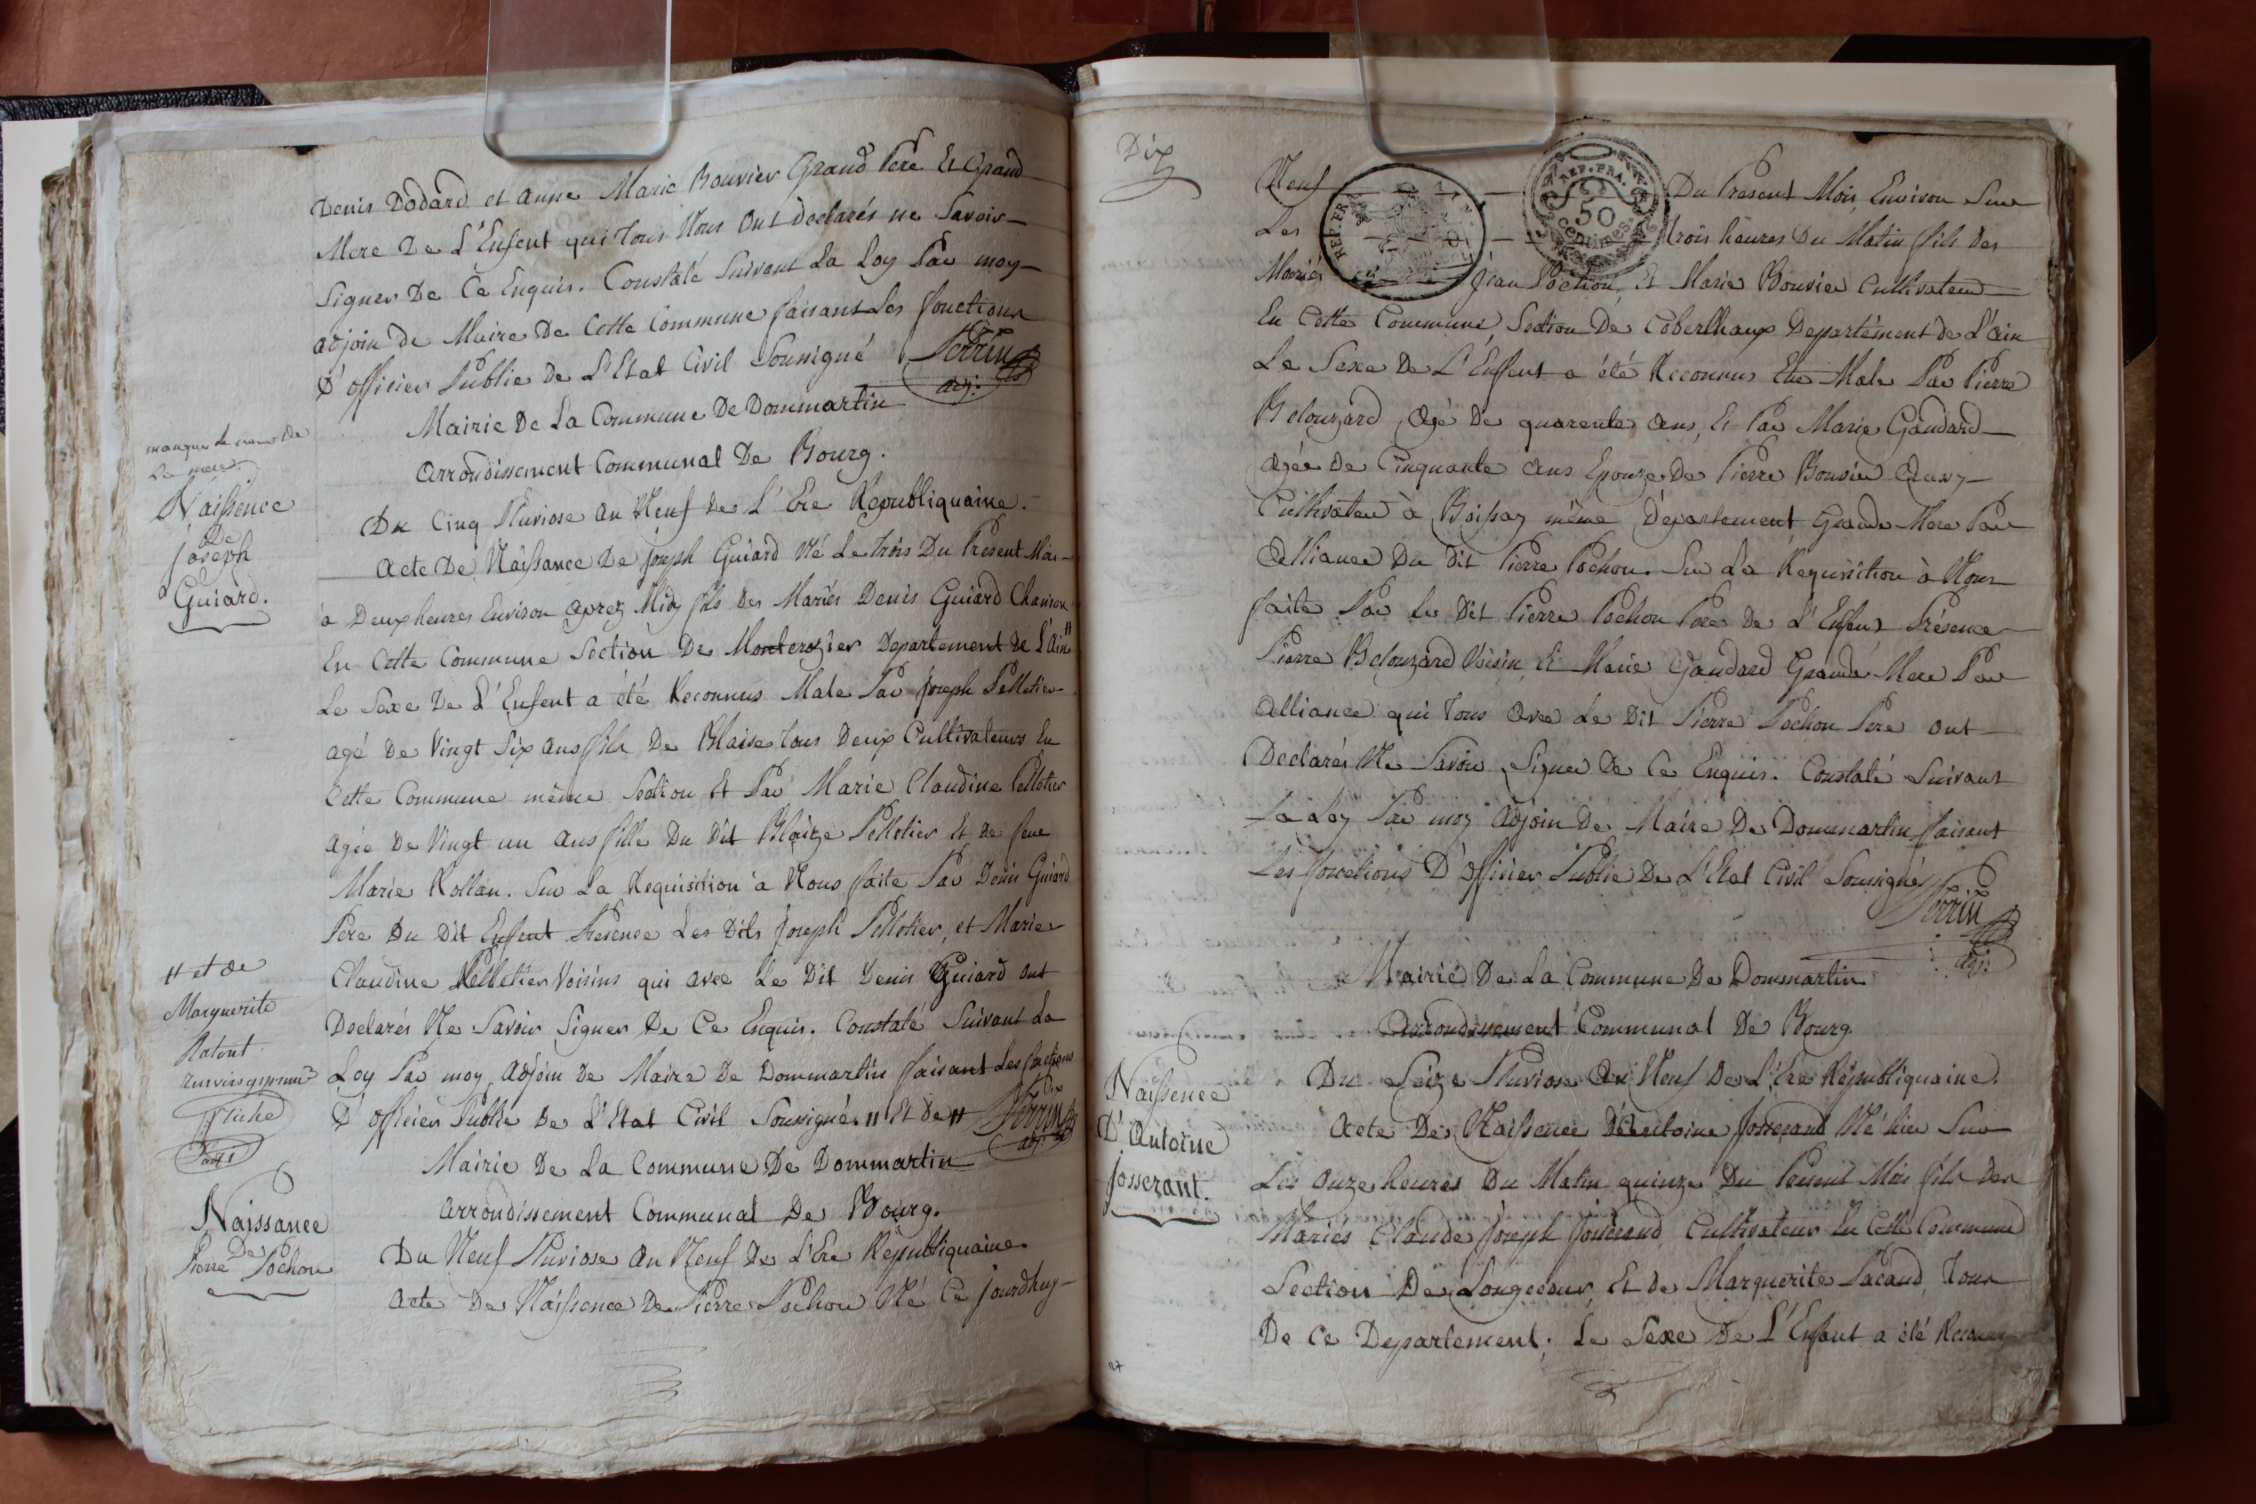 Denis Dodard et anne Marie Bouvier Grand Pere Et Grand
Mere De L'Enfent qui tous Nous ont declarés ne Savoir
Signer De Ce Enquis. Constaté Suivant La Loy Par moy
adjoin de Maire De Cette Commune faisant Les fonctions
D'officier Public de L'Etat Civil Soussigné Perrin
adj.
Mairie De La Commune De Dommartin
arrondissement Communal De Bourg.
manque le nom de
la mere
Naissence
de
joseph
Guiard.
Du Cinq Pluviose an Neuf De L'Ere Republiquaine.
acte De Naissance De joseph Guiard Né Le trois Du Présent Mois
à Deux heures Environ aprez Midy fils Des Mariés Denis Guiard
En Cette Commune Séction De Monterozier Departement de L'ain "
Le Sexe De L'Enfent a été Reconnus Male Par joseph Pelletier
agé De Vingt Six ans fils De Blaise tous Deux Cultivateurs En
Cette Commune même Section Et Par Marie Claudine Pelletier
agée De Vingt un ans fille Du Dit Blaize Pelletier Et de feue
Marie Rollan. Sur La Requisition à Nous faite Par Denis Guiard
Pere Du Dit Enfent Présence Les Dits joseph Pelletier, et Marie
Claudine Pelletier Voisins qui avec Le Dit Denis Guiard ont
Declarés Ne Savoir Signer De Ce Enquis. Constaté Suivant La
Loy Par moy adjoin De Maire De Dommartin faisant Les fonctions
D'officier Public De L'Etat Civil Soussigné. " Et De " Perrin
adj.
" et de
Marguerite
Mairie De La Commune De Dommartin
arrondissement Communal De Bourg.
Naissance
De
Pierre Pochon
Du Neuf Pluviose an Neuf De L'Ere Républiquaine.
acte De Naissence De Pierre Pochon Né Ce jourdhuy
Dix
Neuf Du Présent Mois, Environ Sur
Les trois heures Du Matin fils des
Mariés jean Pochon, Et Marie Bouvier Cultivateur
REP. FRA.
50
CENTIMES
En Cette Commune Section De Département de L'ain
Le Sexe De L'Enfent a été Reconnus Etre Male Par Pierre
Belouzard agé De quarente ans, Et Par Marie Gaudard
agée De Cinquante ans Epouze De Pierre Bouvier
Cultivateur à Boissey même Département Grande Mere Par
alliance Du Dit Pierre Pochon. Sur La Requisition à Nous
faite Par Le Dit Pierre Pochon Pere De L'Enfent Présence
Pierre Belouzard Voisin, Et Marie Gaudard Grande Mere Par
alliance qui tous avec Le Dit Pierre Pochon Pere ont
Declarés Ne Savoir Signer De Ce Enquis. Constaté Suivant
La Loy Par moy adjoin De Maire De Dommartin faisant
Les fonctions D'officier Public De L'Etat Civil Soussigné
Perrin
adj.
Mairie De La Commune De Dommartin
arrondissement Communal De Bourg.
Naissence
D'Antoine
josserant.
Du Seize Pluviose an Neuf De L'Ere Républiquaine.
acte De Naissence D'antoine josserand Né hier Sur
Les onze heures Du Matin quinze Du Present Mois fils Des
Mariés Claude joseph josserand Cultivateur En Cette Commune
Section De Longecour, Et de Marguerite Pacaud, tous
De Ce Departement. Le Sexe De L'Enfant a été Reconnus